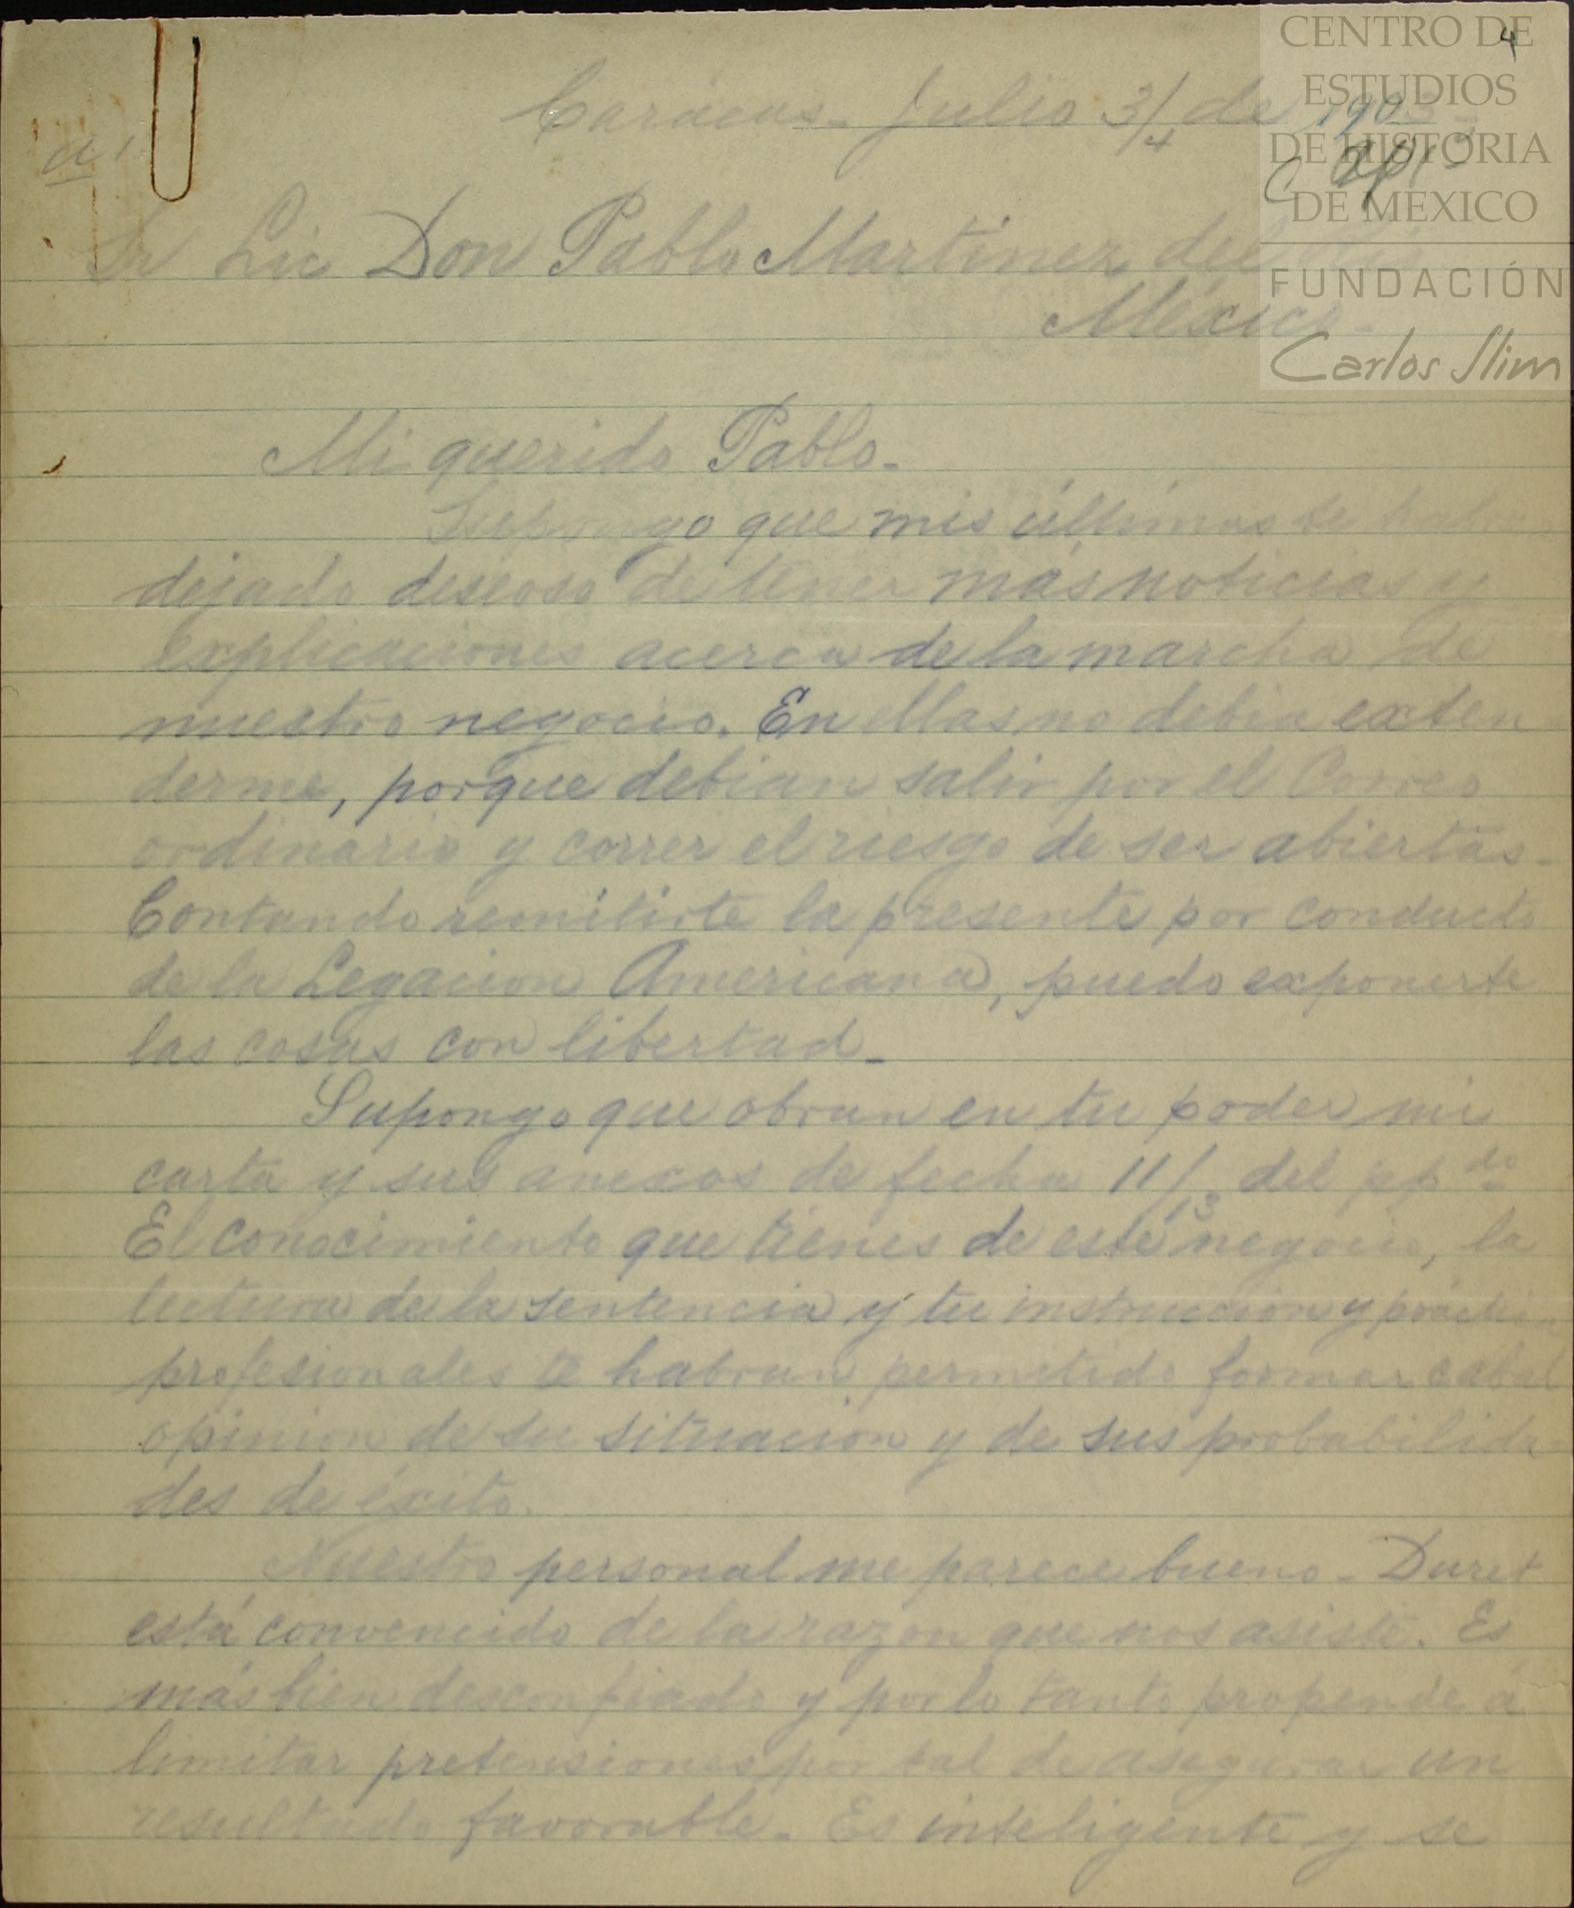 4
CENTRO DE
ESTUDIOS
DE HISTORIA
DE MEXICO
FUNDACIÓN
Carlos Slim
Carácas - Julio 3/4 de 190
a
Sr Lic Don Pablo Martinez del
México -
Mi querido Pablo -
Supongo que mis últimas te habrán
dejado deseoso de tener más noticias y
explicaciones acerca de la marcha de
nuestro negocio. En ellas no debia exten
derme, porque debian salir por el Correo
ordinario y correr el riesgo de ser abiertas -
Contando remitirte la presente por conducto
de la Legacion Americana, puedo exponerte
las cosas con libertad -
Supongo que obran en tu poder mi
carta y sus anexos de fecha 11/13 del ppdo
El conocimiento que tienes de este negocio, la
lectura de la sentencia y tu instruccion y práctica
profesionales te habran permitido formar cabal
opinion de su situacion y de sus probabilida
des de éxito.
Nuestro personal me parece bueno - Duret
está convencido de la razon que nos asiste. Es
más bien desconfiado y por lo tanto propende á
limitar pretensiones por tal de asegurar un
resultado favorable - Es inteligente y se